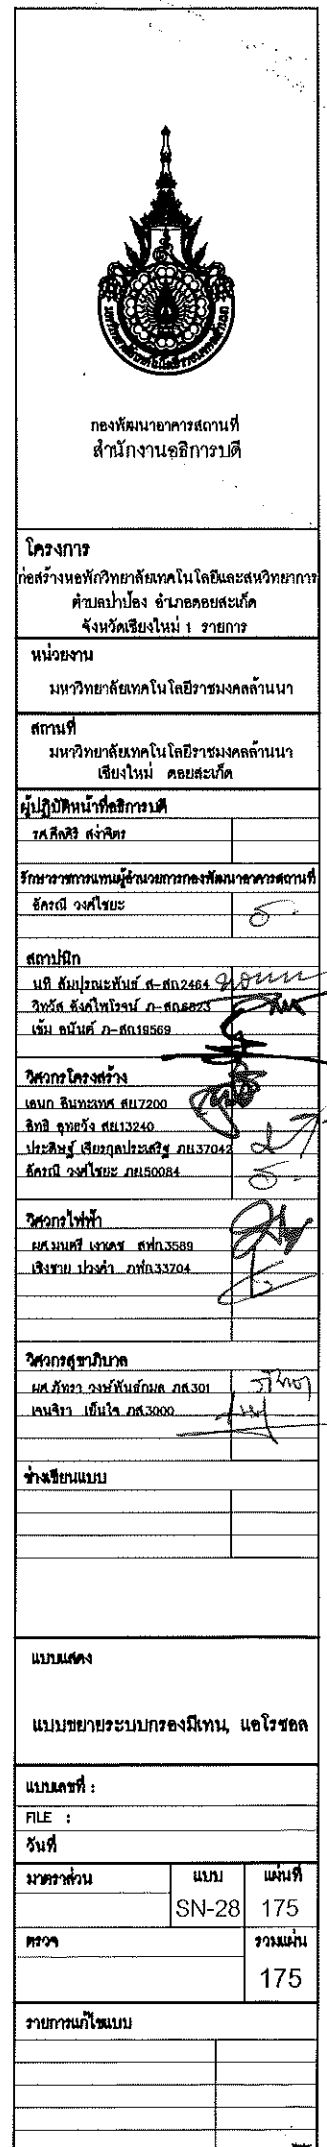 กองพัฒนาอาคารสถานที่
สำนักงานอธิการบดี
โครงการ
ก่อสร้างหอพักวิทยาลัยเทคโนโลยีและสหวิทยาการ
ตำบลป่าป้อง อำเภอดอยสะเก็ด
จังหวัดเชียงใหม่ 1 รายการ
หน่วยงาน
มหาวิทยาลัยเทคโนโลยีราชมงคลล้านนา
สถานที่
มหาวิทยาลัยเทคโนโลยีราชมงคลล้านนา
เชียงใหม่ ดอยสะเก็ด
ผู้ปฏิบัติหน้าที่อธิการบดี
รศ.ศีลศิริ สง่าจิตร
รักษาราชการแทนผู้อำนวยการกองพัฒนาอาคารสถานที่
อัครณี วงศ์ไชยะ
สถาปนิก
นที สัมปุรณะพันธ์ ส-สถ2464
วิทวัส ภ-สถ6823
เข้ม อนันต์ ภ-สถ19569
วิศวกรโครงสร้าง
เอนก อินทะเทศ สย17200
อิทธิ สย13240
ประดิษฐ์ เจียรกุลประเสริฐ ภย37042
อัครณี วงศ์ไชยะ ภย50084
วิศวกรไฟฟ้า
ผศ.มนตรี เงาเดช สฟก.3589
เชิงชาย ปวงคำ ภฟก.33704
วิศวกรสุขาภิบาล
ผศ.ภัทรา ภส.301
เจนจิรา เย็นใจ ภส.3000
ช่างเขียนแบบ
แบบแสดง
แบบขยายระบบกรองมีเทน, แอโรซอล
แบบเลขที่ :
FILE :
วันที่
มาตราส่วน แบบ แผ่นที่
SN-28 175
ตรวจ รวมแผ่น
175
รายการแก้ไขแบบ